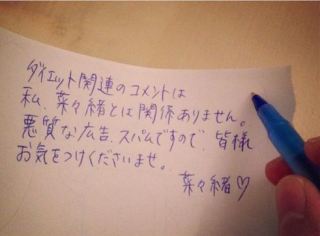 ダイエット関連のコメントは
私、菜々緒とは関係ありません。
悪質な広告、スパムですので、皆様
お気をつけくださいませ。
菜々緒♡